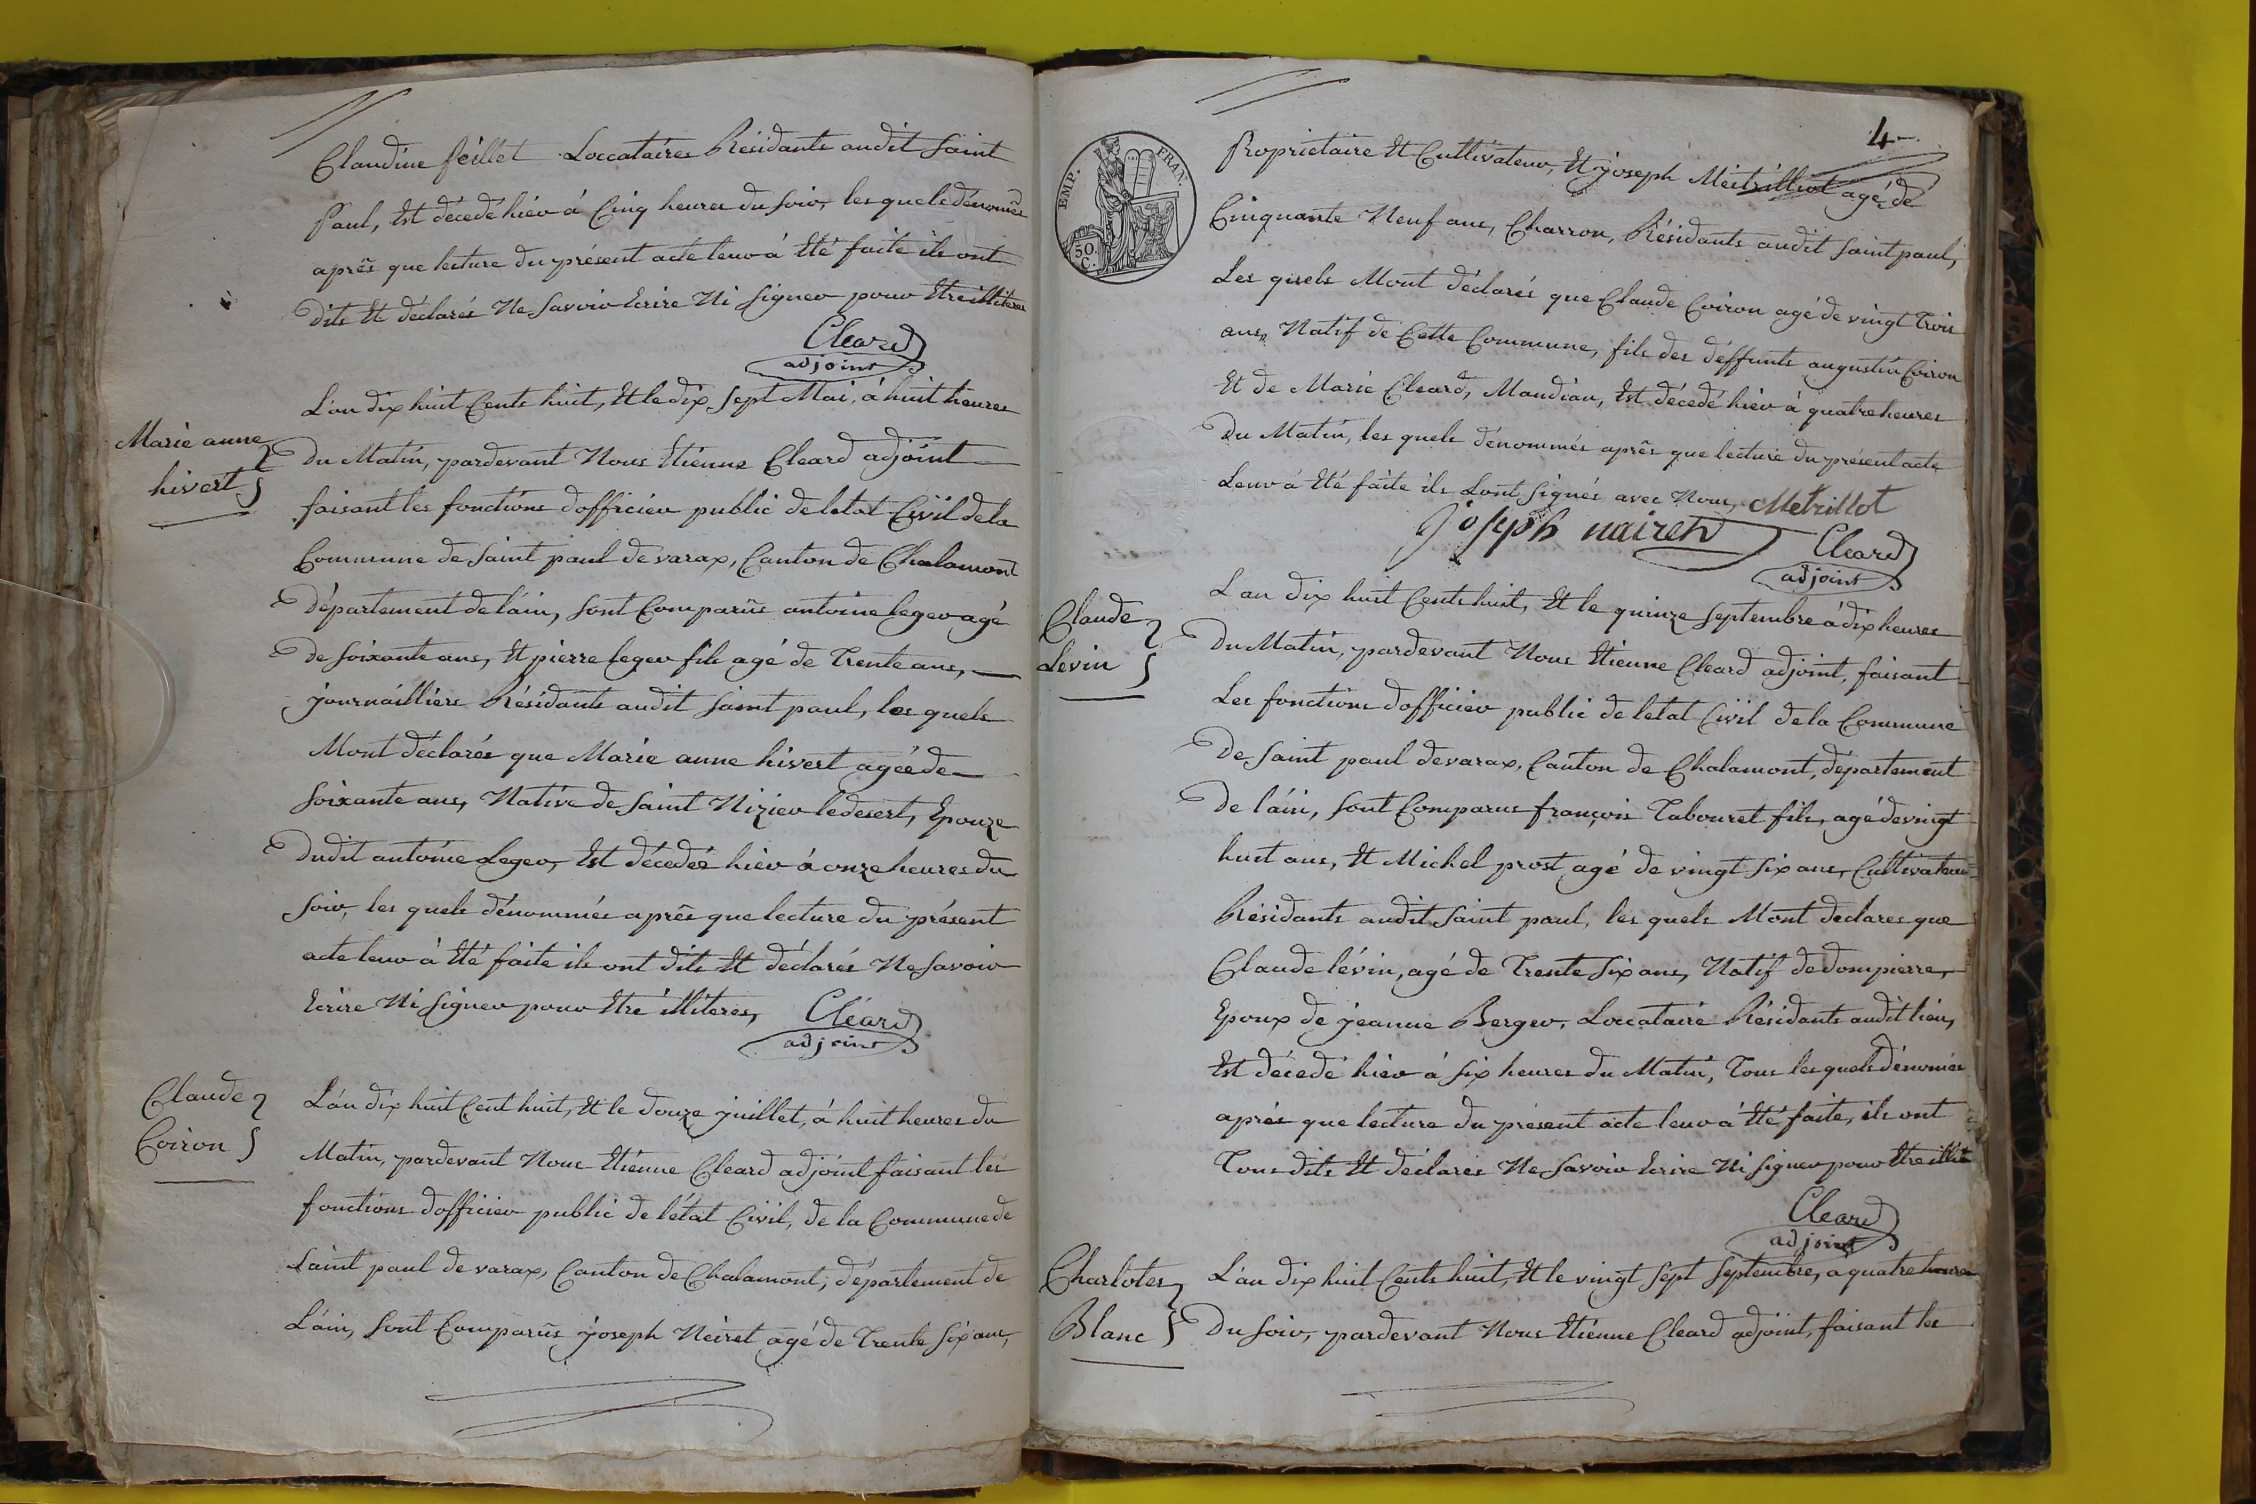 Claudine feillet Loccataires Résidants audit Saint
Paul, Est décedé hiér à Cinq heures du Soir, les quels dénomés
après que lecture du présent acte leur à Eté faite ils ont
dits Et déclarés Ne Savoir Ecrire Ni Signer pour Etre illiteres
Cleard
adjoint
Marie anne
hivert
L'an dix huit Cents huit, Et le dix Sept Mai, à huit heures
du Matin, pardevant Nous Etienne Cleard adjoint
faisant les fonctions dofficier public de letat Civil de la
Commune de Saint paul de varax, Canton de Chalamont
département de láin, Sont Comparûs antoine leger agé
de Soixante ans, Et pierre leger fils agé de Trente ans,
journailliers Résidants audit Saint paul, les quels
Mont déclarés que Marie anne hivert agéé de
Soixante ans, Native de Saint Nizier ledesert, Epouze
dudit antoine Leger, Est décedéé hiér à onze heures du
Soir, les quels dénommés après que lecture du présent
acte leur à Eté faite ils ont dits Et déclarés Ne Savoir
Ecrire Ni Signer pour Etre illiteres,
Cléard
adjoint
Claude
Coiron
L'an dix huit Cent huit, Et le douze juillet, à huit heures du
Matin, pardevant Nous Etienne Cleard adjoint faisant les
fonctions dofficier public de létat Civil, de la Commune de
Saint paul de varax, Canton de Chalamont, département de
L'ain, Sont Comparûs joseph Neiret agé de Trente Six ans,
4
EMP. FRAN.
50 C.
Proprietaire Et Cultivateur, Et joseph Meitrilliot agé de
Cinquante Neuf ans, Charron, Résidants audit Saint paul,
Les quels Mont déclarés que Claude Coiron agé de vingt Trois
ans, Natif de Cette Commune, fils des deffunts augustin Coiron
Et de Marie Cleard, Mandian, Est décedé hiér à quatre heures
du Matin, les quels dénommés après que lecture du présent acte
Leur à Eté faite ils Lont Signés avec Nous, Metrillot
joseph nairet
Cleard
adjoint
Claude
Levin
L'an dix huit Cents huit, Et le quinze Septembre à dix heures
du Matin, pardevant Nous Etienne Cleard adjoint, faisant
Les fonctions dofficier public de letat Civil de la Commune
de Saint paul devarax, Canton de Chalamont, département
de láin, Sont Comparus françois Tabouret fils, agé de vingt
huit ans, Et Michel prost agé de vingt Six ans, Cultivateurs
Résidants audit Saint paul, les quels Mont declares que
Claude lévin, agé de Trente Six ans, Natif de dompierre,
Epoux de jeanne Berger, Loccataire Résidants audit lieu,
Est décedé hiér à Six heures du Matin, Tous les quels dénomés
aprés que lecture du présent acte leur à Eté faite, ils ont
Tous dits Et déclarés Ne Savoir Ecrire Ni Signer pour Etre illit
Cleard
adjoint
Charlotes
Blanc
L'an dix huit Cents huit, Et le vingt Sept Septembre, a quatre heures
du Soir, pardevant Nous Etienne Cleard adjoint, faisant les